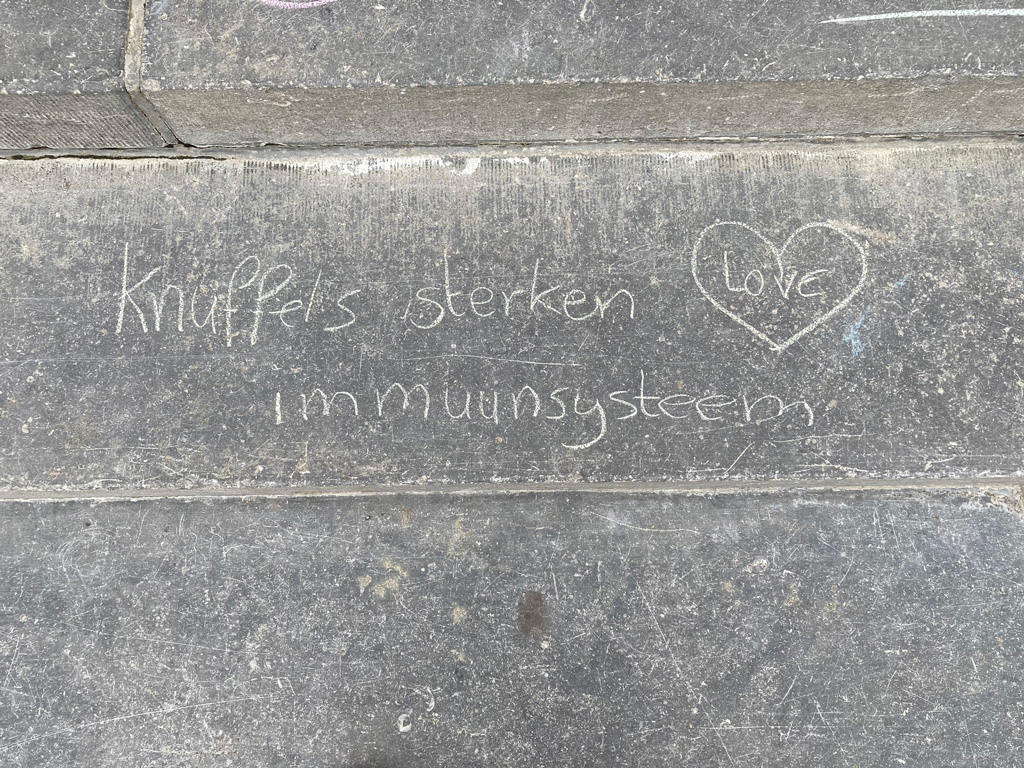 Knuffels sterken
Love
immuunsysteem